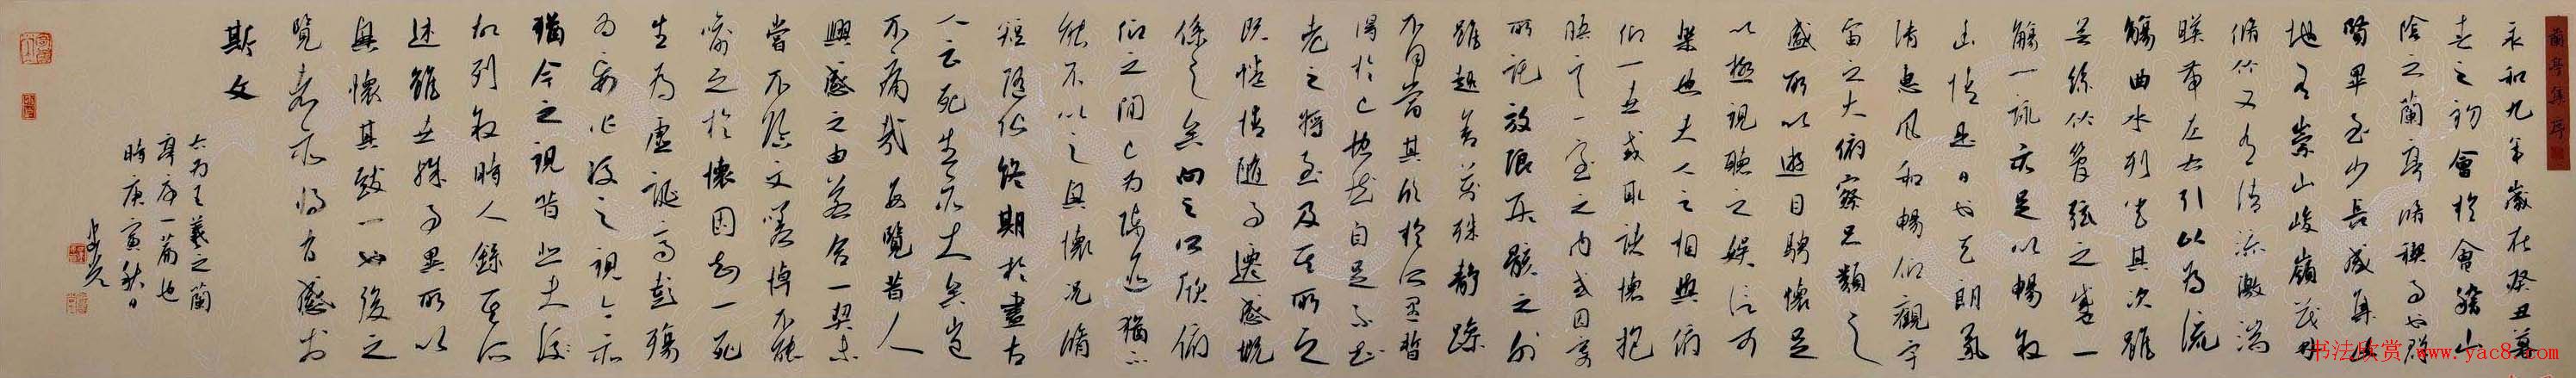 蘭亭集序
永和九年歲在癸丑暮
春之初會於會稽山
陰之蘭亭脩禊事也群
賢畢至少長咸集此
地有崇山峻嶺茂林
脩竹又有清流激湍
暎帶左右引以為流
觴曲水列坐其次雖
無絲竹管弦之盛一
觴一詠亦足以暢敘
幽情是日也天朗氣
清惠風和暢仰觀宇
宙之大俯察品類之
盛所以遊目騁懷足
以極視聽之娛信可
樂也夫人之相與俯
仰一世或取諸懷抱
悟言一室之內或因寄
所託放浪形骸之外
雖趣舍萬殊靜躁
不同當其欣於所遇暫
得於己怏然自足不知
老之將至及其所之
既惓情隨事遷感慨
係之矣向之所欣俯
仰之間已為陳迹猶不
能不以之興懷況脩
短隨化終期於盡古
人云死生亦大矣豈
不痛哉每覽昔人
興感之由若合一契未
嘗不臨文嗟悼不能
喻之於懷固知一死
生為虛誕齊彭殤
為妄作後之視今亦
猶今之視昔悲夫後
故列敘時人錄其所
述雖世殊事異所以
興懷其致一也後之
覽者亦將有感於
斯文
右為王羲之蘭
亭序一篇也
時庚寅秋日
书法欣赏 www.yac8.com